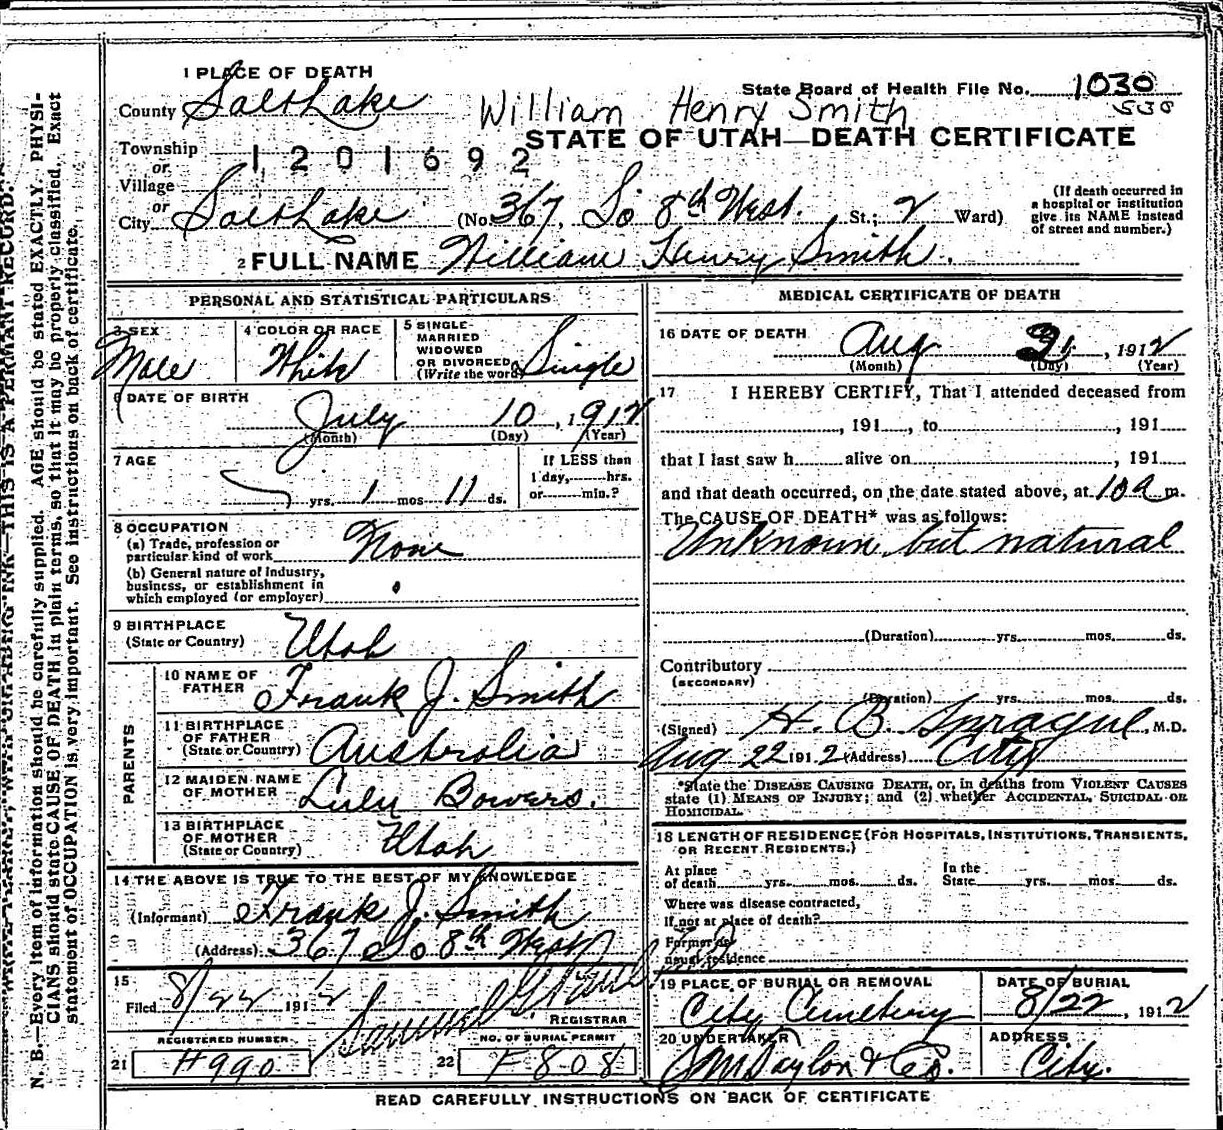 1 PLACE OF DEATH
State Board of Health File No. 1030
County Salt Lake
William Henry Smith
530
STATE OF UTAH—DEATH CERTIFICATE
Township
or
1201692
Village
or
City Salt Lake (No. 367, So 8th West. St.; 2 Ward)
(If death occurred in a hospital or institution give its NAME instead of street and number.)
2 FULL NAME William Henry Smith.
PERSONAL AND STATISTICAL PARTICULARS
3 SEX
Male
4 COLOR OR RACE
White
5 SINGLE
MARRIED
WIDOWED
OR DIVORCED
(Write the word)
Single
6 DATE OF BIRTH
July 10, 1912
(Month) (Day) (Year)
7 AGE
yrs. 1 mos. 11 ds.
If LESS than
1 day, hrs.
or min.?
8 OCCUPATION
(a) Trade, profession or
particular kind of work None
(b) General nature of Industry,
business, or establishment in
which employed (or employer)
9 BIRTHPLACE
(State or Country) Utah
PARENTS
10 NAME OF
FATHER Frank J. Smith
11 BIRTHPLACE
OF FATHER
(State or Country) Australia
12 MAIDEN NAME
OF MOTHER Lulu Bowers.
13 BIRTHPLACE
OF MOTHER
(State or Country) Utah
14 THE ABOVE IS TRUE TO THE BEST OF MY KNOWLEDGE
(Informant) Frank J. Smith
(Address) 367 So 8th West
15
Filed 8/22 1912
REGISTRAR
REGISTERED NUMBER
21 H990
NO. OF BURIAL PERMIT
22 F808
MEDICAL CERTIFICATE OF DEATH
16 DATE OF DEATH
Aug 21, 1912
(Month) (Day) (Year)
17 I HEREBY CERTIFY, That I attended deceased from
, 191 , to , 191
that I last saw h alive on , 191
and that death occurred, on the date stated above, at 10 a m.
The CAUSE OF DEATH* was as follows:
Unknown, but natural
(Duration) yrs. mos. ds.
Contributory
(SECONDARY)
(Duration) yrs. mos. ds.
(Signed) H. B. Sprague M.D.
Aug 22 1912 (Address) City
*State the DISEASE CAUSING DEATH, or, in deaths from VIOLENT CAUSES
state (1) MEANS OF INJURY; and (2) whether ACCIDENTAL, SUICIDAL OR
HOMICIDAL.
18 LENGTH OF RESIDENCE (FOR HOSPITALS, INSTITUTIONS, TRANSIENTS,
OR RECENT RESIDENTS.)
At place
of death yrs. mos. ds.
In the
State yrs. mos. ds.
Where was disease contracted,
If not at place of death?
Former or
usual residence
19 PLACE OF BURIAL OR REMOVAL
City Cemetery
DATE OF BURIAL
8/22, 1912
20 UNDERTAKER
Taylor & Co.
ADDRESS
City.
READ CAREFULLY INSTRUCTIONS ON BACK OF CERTIFICATE
WRITE PLAINLY WITH UNFADING INK—THIS IS A PERMANENT RECORD.
N. B.—Every item of information should be carefully supplied. AGE should be stated EXACTLY. PHYSI-
CIANS should state CAUSE OF DEATH in plain terms, so that it may be properly classified. Exact
statement of OCCUPATION is very important. See instructions on back of certificate.